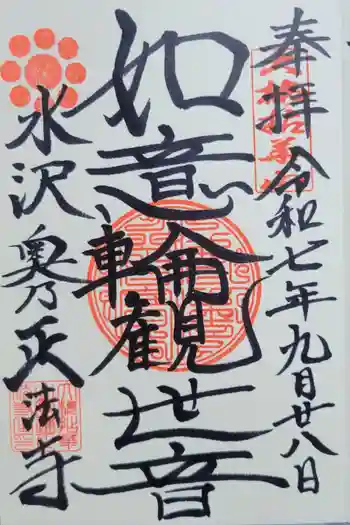 奉拝
令和七年九月廿八日
如意輪観世音
水沢
奥乃正法寺